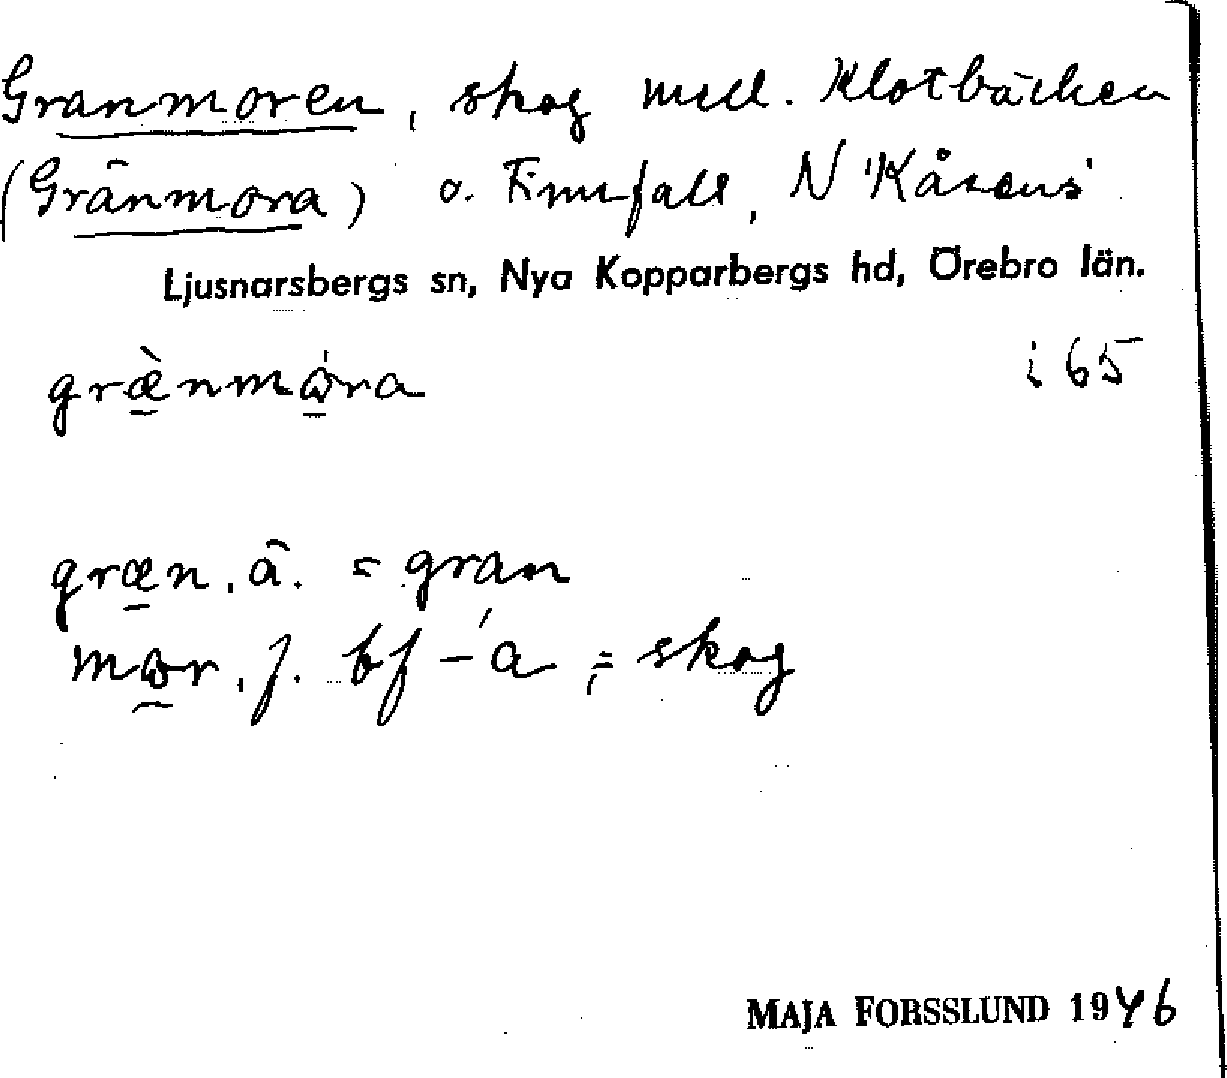 Granmoren, skog mell. Klotbäcken
(Gränmora) o. Finnfall, N 'Kåsens'
Ljusnarsbergs sn, Nya Kopparbergs hd, Örebro län.
græ̀nmω̇ra i 65
græn, ä. = gran
mωr, f. bf -́a, = skog
MAJA FORSSLUND 1946